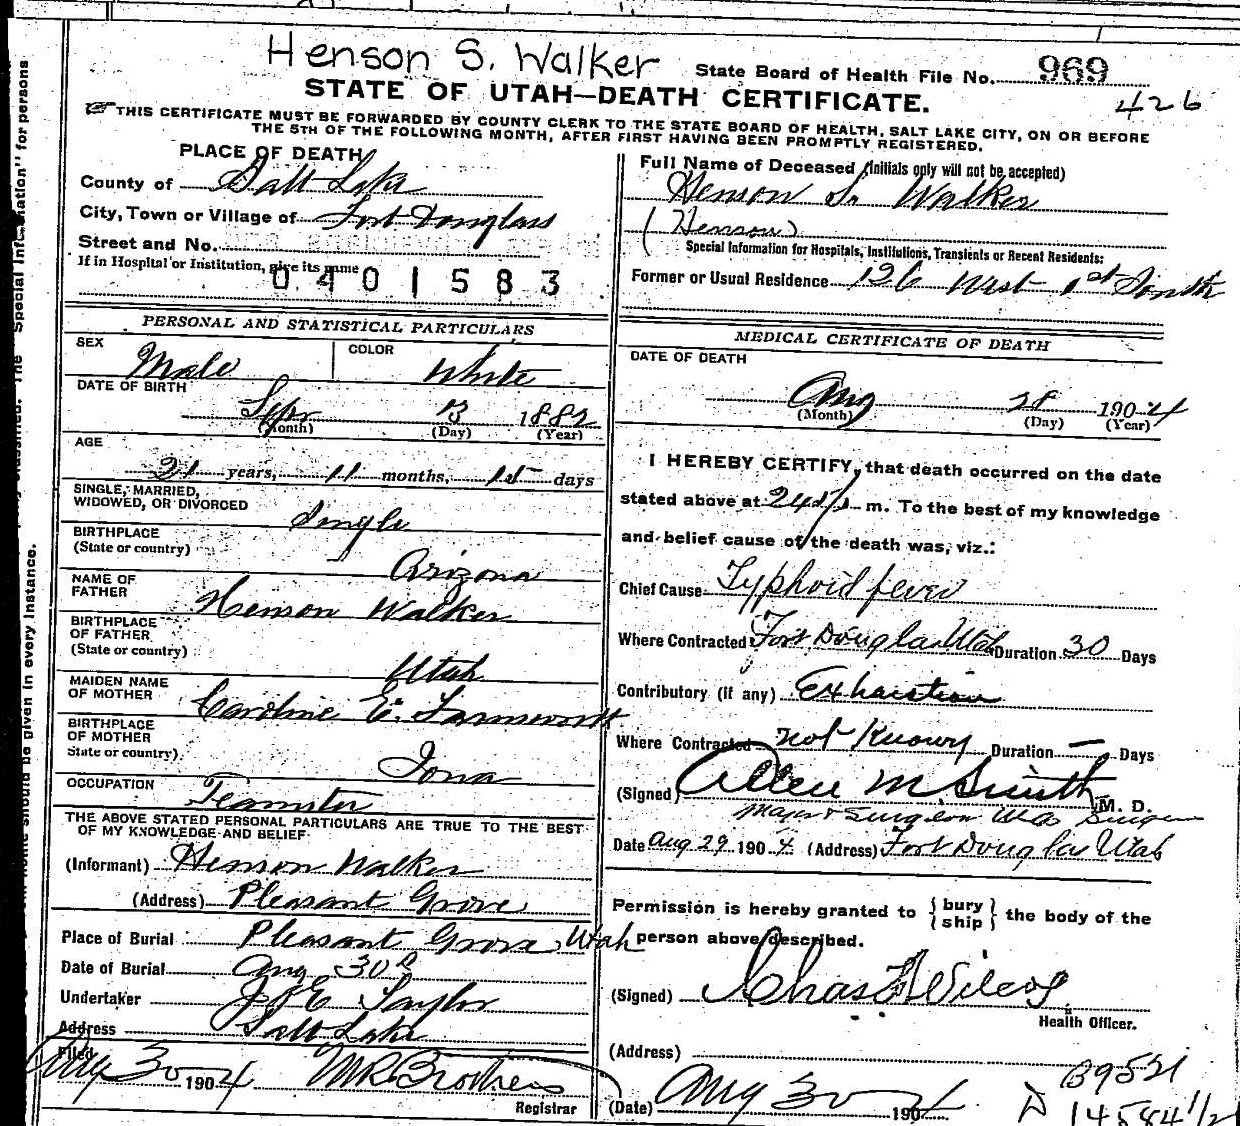 Henson S. Walker
State Board of Health File No. 969
426
STATE OF UTAH—DEATH CERTIFICATE.
THIS CERTIFICATE MUST BE FORWARDED BY COUNTY CLERK TO THE STATE BOARD OF HEALTH, SALT LAKE CITY, ON OR BEFORE
THE 5TH OF THE FOLLOWING MONTH, AFTER FIRST HAVING BEEN PROMPTLY REGISTERED.
PLACE OF DEATH
County of Salt Lake
City, Town or Village of Fort Douglass
Street and No.
If in Hospital or Institution, give its name
0401583
PERSONAL AND STATISTICAL PARTICULARS
SEX Male COLOR White
DATE OF BIRTH
Sep 13 1882
(Month) (Day) (Year)
AGE
21 years, 11 months, 15 days
SINGLE, MARRIED,
WIDOWED, OR DIVORCED Single
BIRTHPLACE
(State or country) Arizona
NAME OF
FATHER Henson Walker
BIRTHPLACE
OF FATHER
(State or country) Utah
MAIDEN NAME
OF MOTHER Caroline E. Farnsworth
BIRTHPLACE
OF MOTHER
State or country) Iowa
OCCUPATION Teamster
THE ABOVE STATED PERSONAL PARTICULARS ARE TRUE TO THE BEST
OF MY KNOWLEDGE AND BELIEF
(Informant) Henson Walker
(Address) Pleasant Grove
Place of Burial Pleasant Grove, Utah
Date of Burial Aug 30
Undertaker Taylor
Address Salt Lake
Filed Aug 30 1904
Registrar
Full Name of Deceased (Initials only will not be accepted)
Henson S. Walker
(Henson)
Special Information for Hospitals, Institutions, Transients or Recent Residents:
Former or Usual Residence 126 West 1st South
MEDICAL CERTIFICATE OF DEATH
DATE OF DEATH
Aug 28 1904
(Month) (Day) (Year)
I HEREBY CERTIFY, that death occurred on the date
stated above at m. To the best of my knowledge
and belief cause of the death was, viz.:
Chief Cause Typhoid fever
Where Contracted Fort Douglas Utah Duration 30 Days
Contributory (if any) Exhaustion
Where Contracted not known Duration — Days
(Signed) Allen M. Smith M. D.
Major & Surgeon
Date Aug 29 1904 (Address) Fort Douglas Utah
Permission is hereby granted to { bury ship } the body of the
person above described.
(Signed) Chas
Health Officer.
(Address)
(Date) Aug 30 1904
B9521
14584 1/2
should be given in every instance.
The "Special Information" for persons